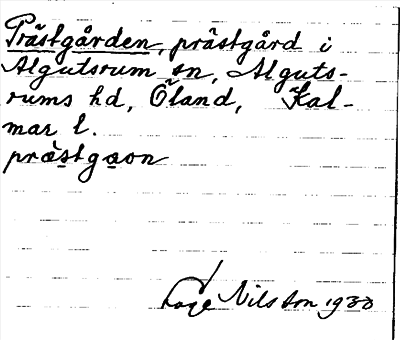 Prästgården, prästgård i
Algutsrum sn, Alguts-
rums hd, Öland, Kal-
mar l.
prästgaon
Nilsson 1933